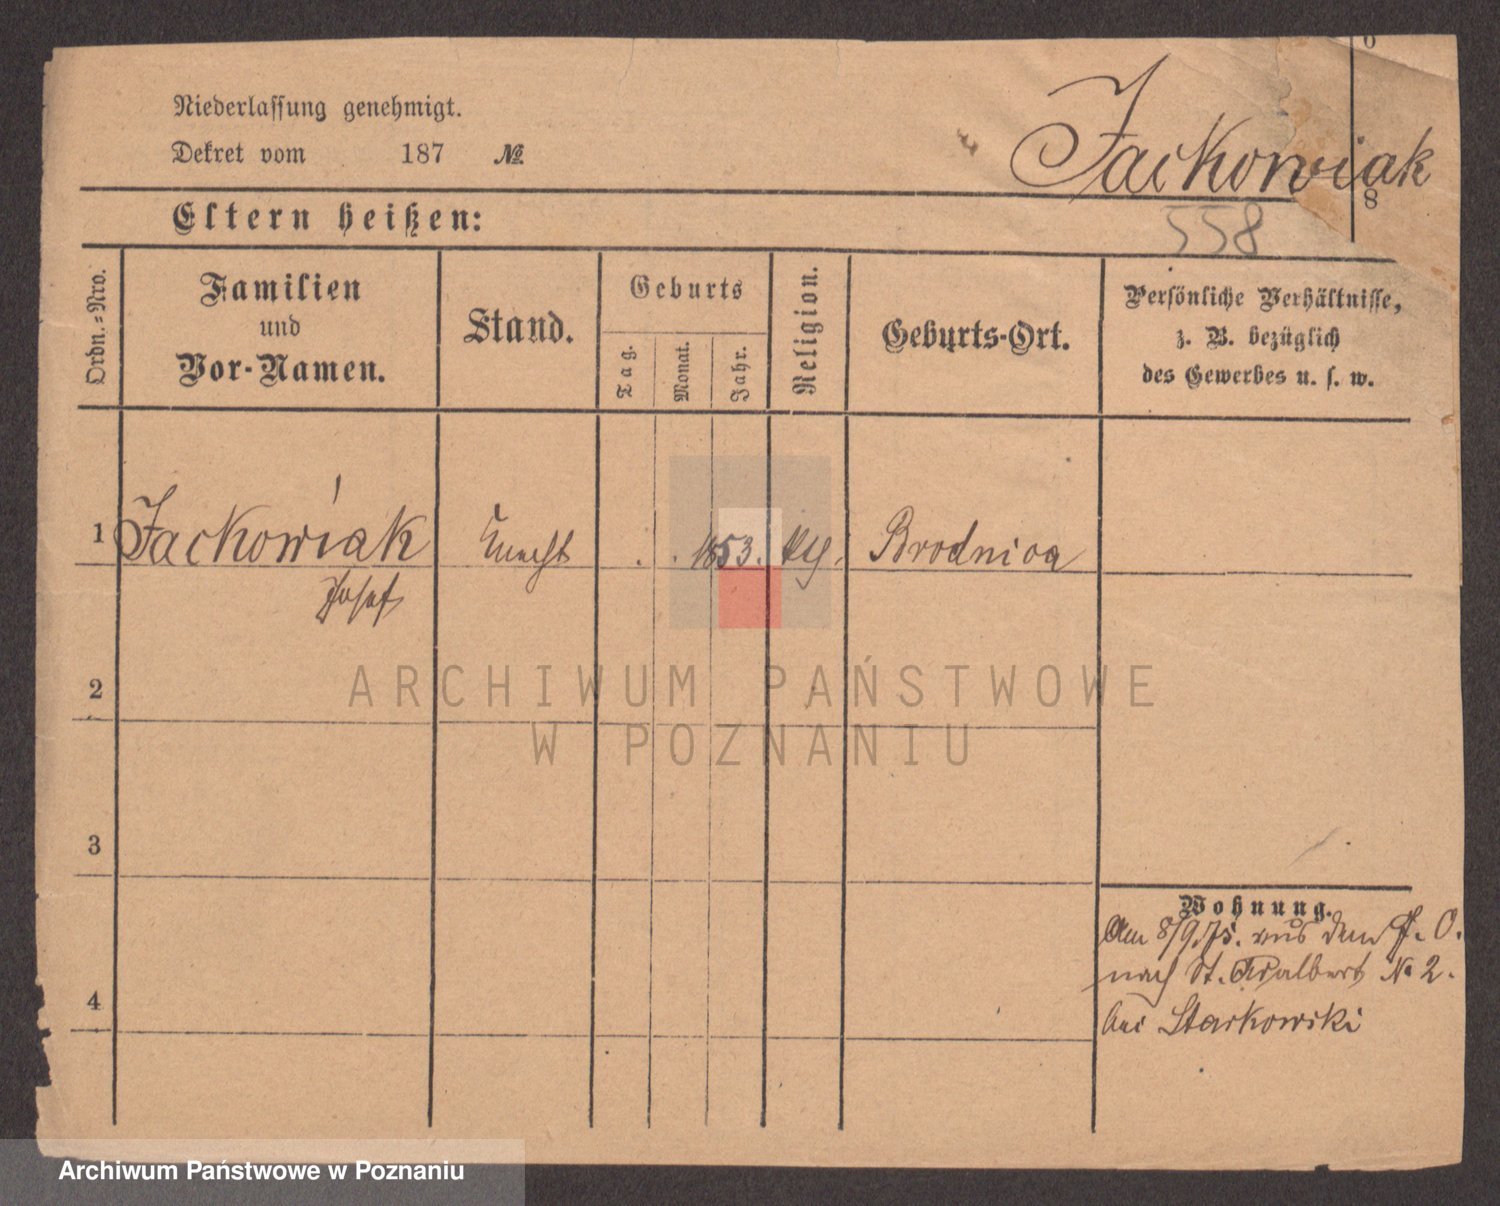 Niederlassung genehmigt.
Dekret vom 187 №
Jackowiak
0
8
558
Eltern heißen:
Ordn.-Nro.
Familien
und
Vor-Namen.
Stand.
Geburts
Tag.
Monat.
Jahr.
Religion.
Geburts-Ort.
Persönliche Verhältnisse,
z. B. bezüglich
des Gewerbes u. s. w.
1 Jackowiak Knecht . . 1853. kth. Brodnica
Josef
2
3
4
Wohnung.
Am 8/9.75. aus dem P. O.
nach St. Adalbert № 2.
bei Starkowski
ARCHIWUM PAŃSTWOWE
W POZNANIU
Archiwum Państwowe w Poznaniu